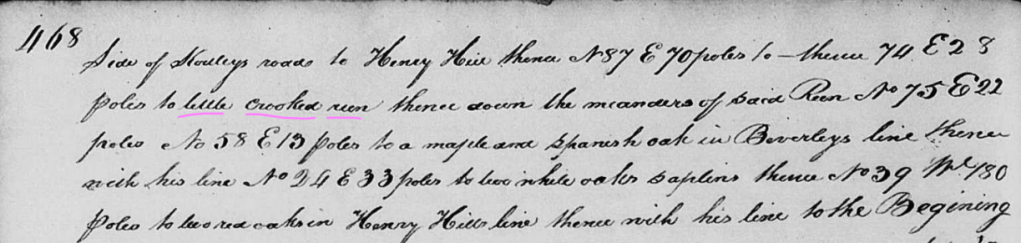 468
Side of Kouleys road to Henry Hill thence N 87 E 70 poles to — thence 74 E 28
poles to little crooked run thence down the meanders of said Run No 75 E 22
poles No 58 E 13 poles to a maple and spanish oak in Beverleys line thence
with his line No 24 E 33 poles to two white oaks saplins thence No 39 W 180
poles to two red oaks in Henry Hills line thence with his line to the Begining